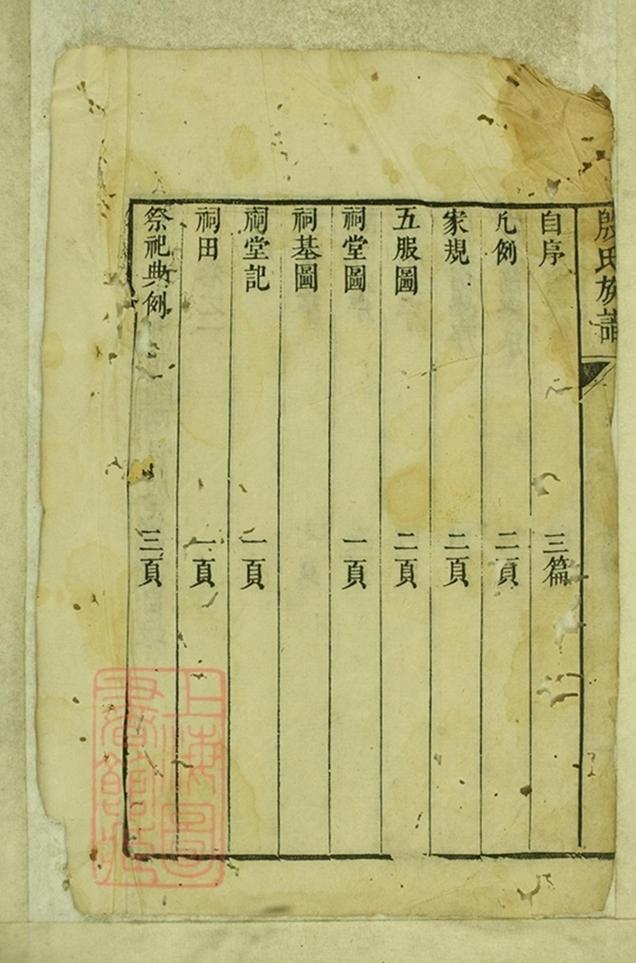 殷氏族譜
自序 三篇
凡例 二頁
家規 二頁
五服圖 二頁
祠堂圖 一頁
祠基圖
祠堂記 一頁
祠田 一頁
祭祀典例 三頁
上海圖書館藏